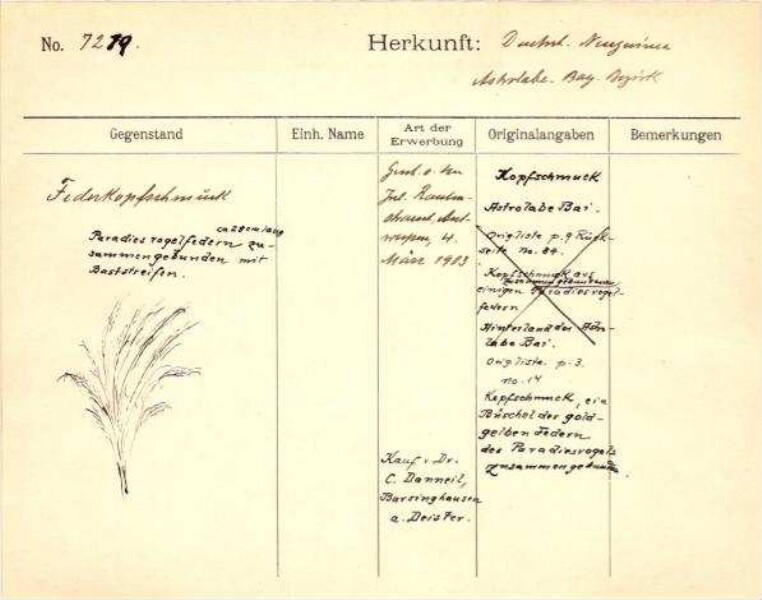 No. 7219.
Herkunft: Deutsch. Neuguinea
Astrolabe. Bay. Bezirk
Gegenstand
Einh. Name
Art der Erwerbung
Originalangaben
Bemerkungen
Federkopfschmuck
ca 28 cm lang
Paradiesvogelfedern zu-
sammengebunden mit
Baststreifen.
4.
März 1903
Kauf v. Dr.
C. Danneil,
Barsinghausen
a. Deister.
Kopfschmuck
Astrolabe Bai.
Orig liste p. 9 Rück-
seite no. 84.
Kopfschmuck aus
zusammengebundenen
einigen Paradiesvogel-
federn
Hinterland der Astro-
labe Bai.
Orig liste. p. 3.
no. 14
Kopfschmuck, ein
Büschel der gold-
gelben Federn
des Paradiesvogels
zusammengebunden